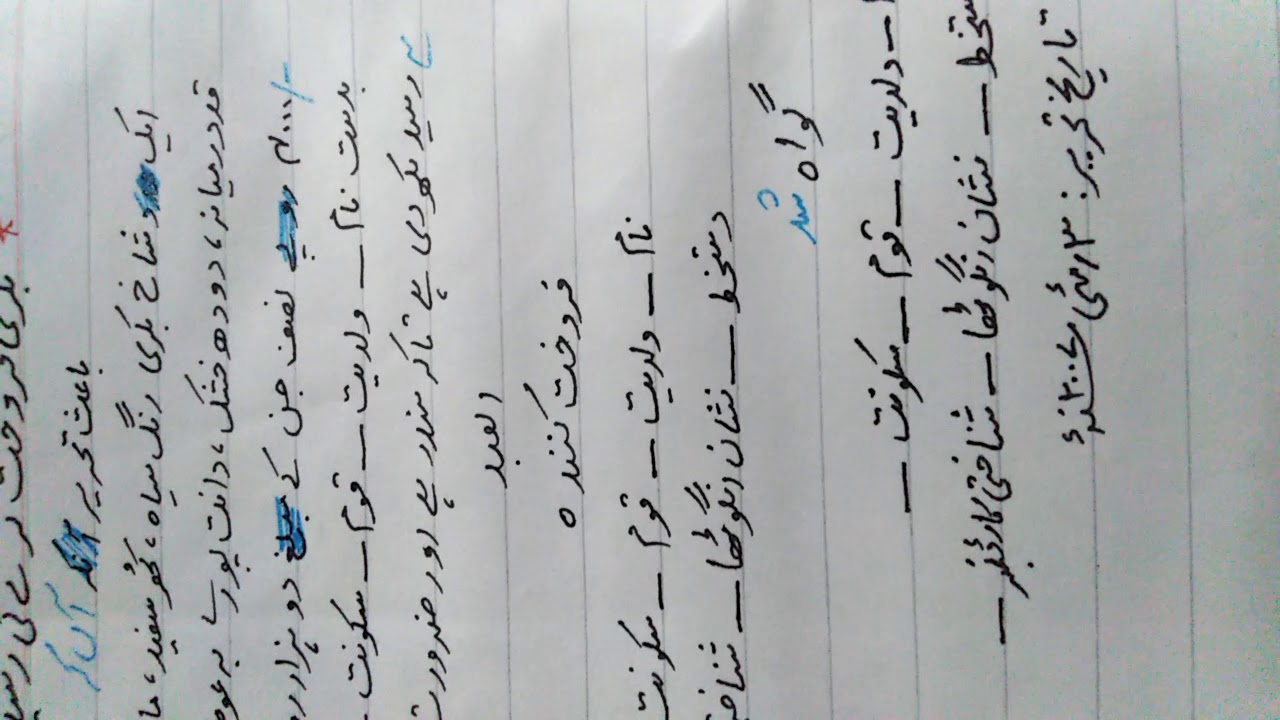 * بکری فروخت کرنے کی رسید
باعث تحریر آں کہ
ایک شاخ بکری رنگ سیاہ، کھر سفید،
قد درمیانہ، دودھ خشک، دانت پورے بہ عوض
نصف جن کے دو ہزار
بدست نام — ولدیت — قوم — سکونت —
یہ رسید لکھ دی ہے تاکہ سند رہے اور ضرورت
العبد
فروخت کنندہ
نام — ولدیت — قوم — سکونت
دستخط — نشان انگوٹھا —
گواہ شد
— ولدیت — قوم — سکونت —
دستخط — نشان انگوٹھا — شناختی کارڈ نمبر —
تاریخ تحریر: ۳ مئی